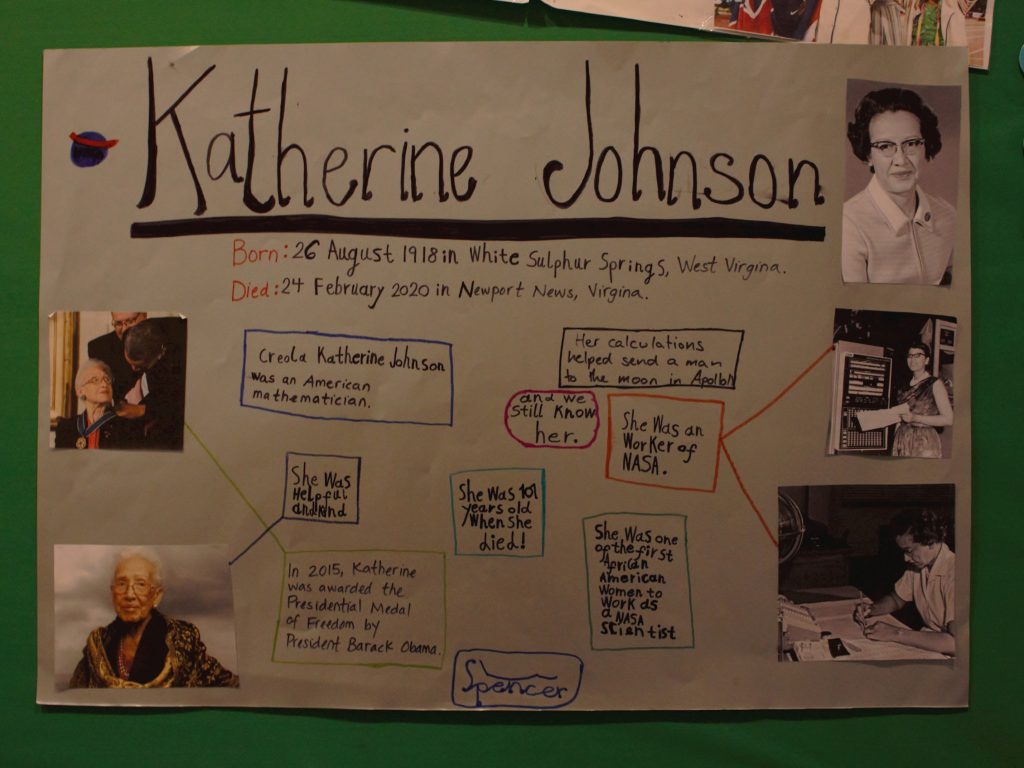 Katherine Johnson
Born: 26 August 1918 in White Sulphur Springs, West Virgina.
Died: 24 February 2020 in Newport News, Virgina.
Creola Katherine Johnson
was an American
mathematician.
Her calculations
helped send a man
to the moon in Apollo 11
and we
still know
her.
She Was an
Worker of
NASA.
She Was
Helpful
and kind
She Was 101
years old
When she
died!
She Was one
of the first
African
American
Women to
Work as
a NASA
Scientist
In 2015, Katherine
was awarded the
Presidential Medal
of Freedom by
President Barack Obama.
Spencer